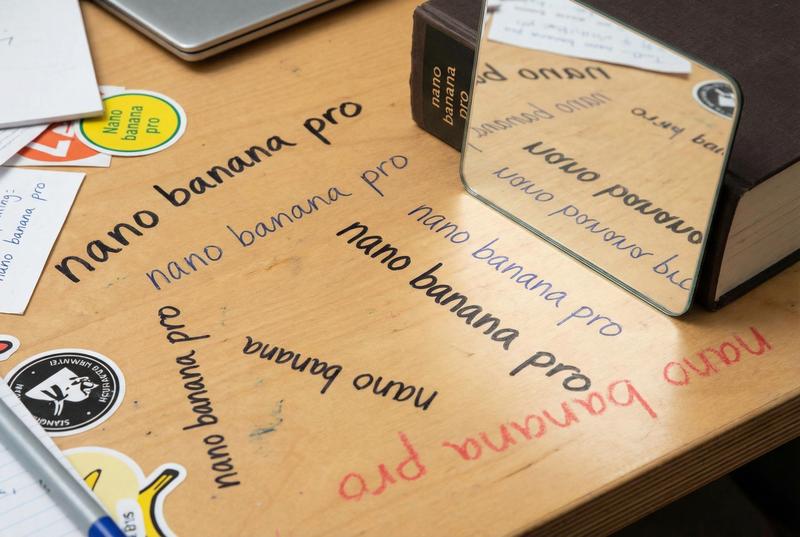 Nano
banana
pro
nano banana pro
nano banana pro
nano banana pro
nano banana pro
nano banana pro
nano banana
nano banana pro
nano
banana
pro
nano banana pro
nano
nano
pro
nano
nano